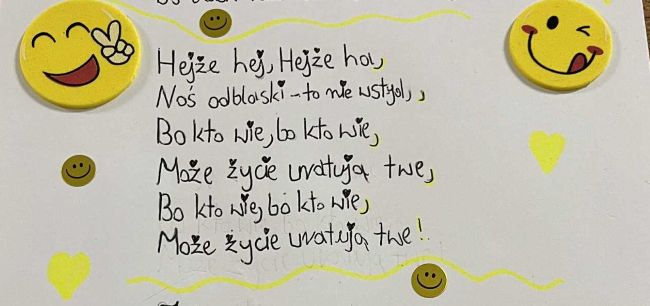 Hejże hej, Hejże ha,
Noś odblaski - to nie wstyd,
Bo kto wie, bo kto wie,
Może życie uratują twe,
Bo kto wie, bo kto wie,
Może życie uratują twe!